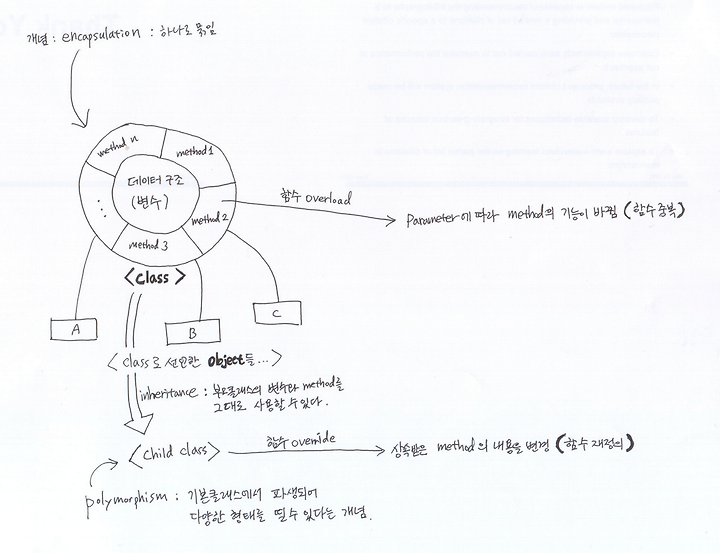 개념 : encapsulation : 하나로 묶임
method n
method 1
데이터 구조
(변수)
method 2
method 3
⋮
함수 overload
Parameter에 따라 method의 기능이 바뀜 (함수 중복)
<Class>
A
B
C
<Class로 선언한 Object들...>
inheritance : 부모클래스의 변수와 method를
그대로 사용할 수 있다.
<Child class>
함수 override
상속받은 method의 내용을 변경 (함수 재정의)
polymorphism : 기본클래스에서 파생되어
다양한 형태를 띌 수 있다는 개념.